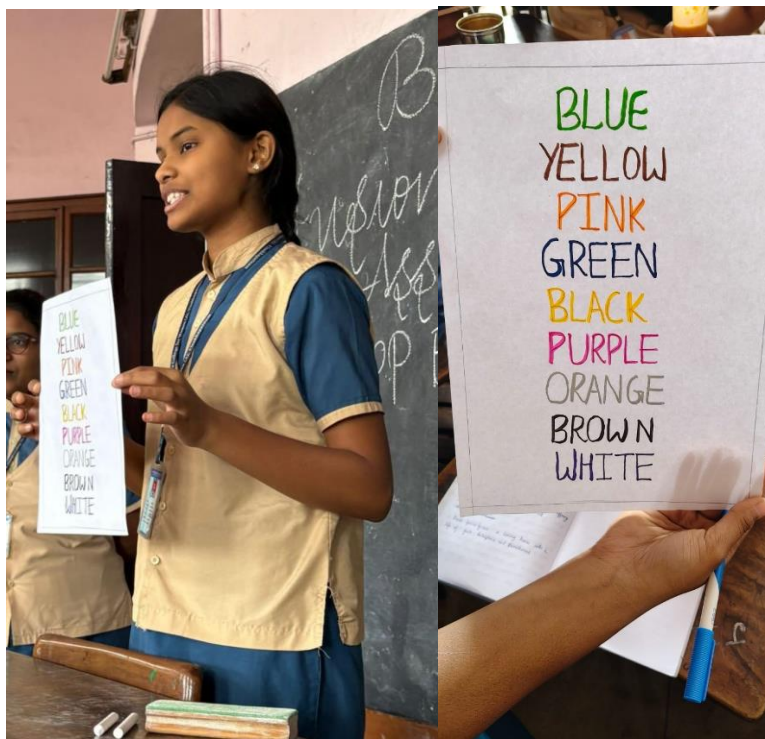 BLUE
YELLOW
PINK
GREEN
BLACK
PURPLE
ORANGE
BROWN
WHITE
B
BLUE
YELLOW
PINK
GREEN
BLACK
PURPLE
ORANGE
BROWN
WHITE